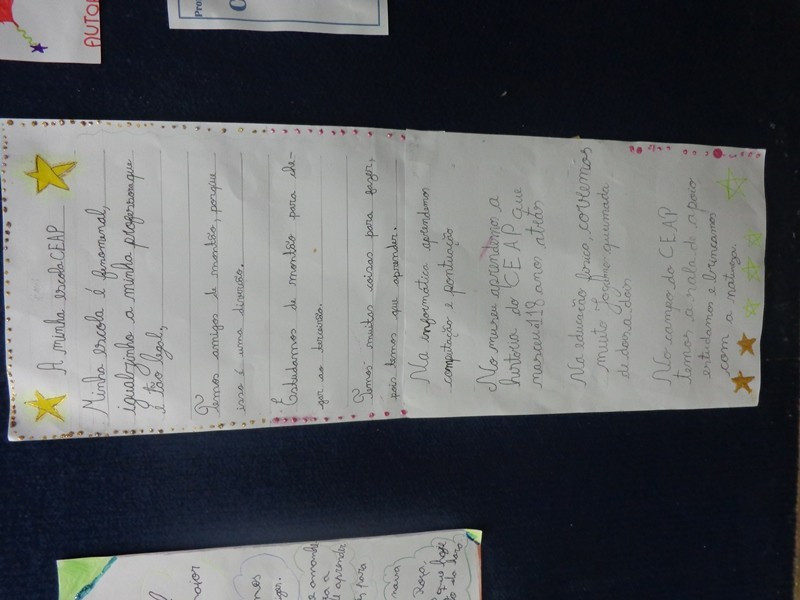 A minha escola CEAP
Minha escola é fenomenal,
igualzinha a minha professora que
é tão legal,
Temos amigos de montão, porque
isso é uma diversão.
Estudamos de montão para che-
gar ao terceirão.
Temos muitas coisas para fazer,
pois temos que aprender.
Na informática aprendemos
computação e pontuação
No museu aprendemos a
história do CEAP que
nasceu a 118 anos atrás
Na educação física, corremos
muito jogamos queimada
de dois a dois
No campo do CEAP
temos a sala de apoio
estudamos e brincamos
com a natureza.
AUTOR
Pro
C
aior
mos
e amanhã
ga a
de aprender
para
nava
Roça,
que hoje